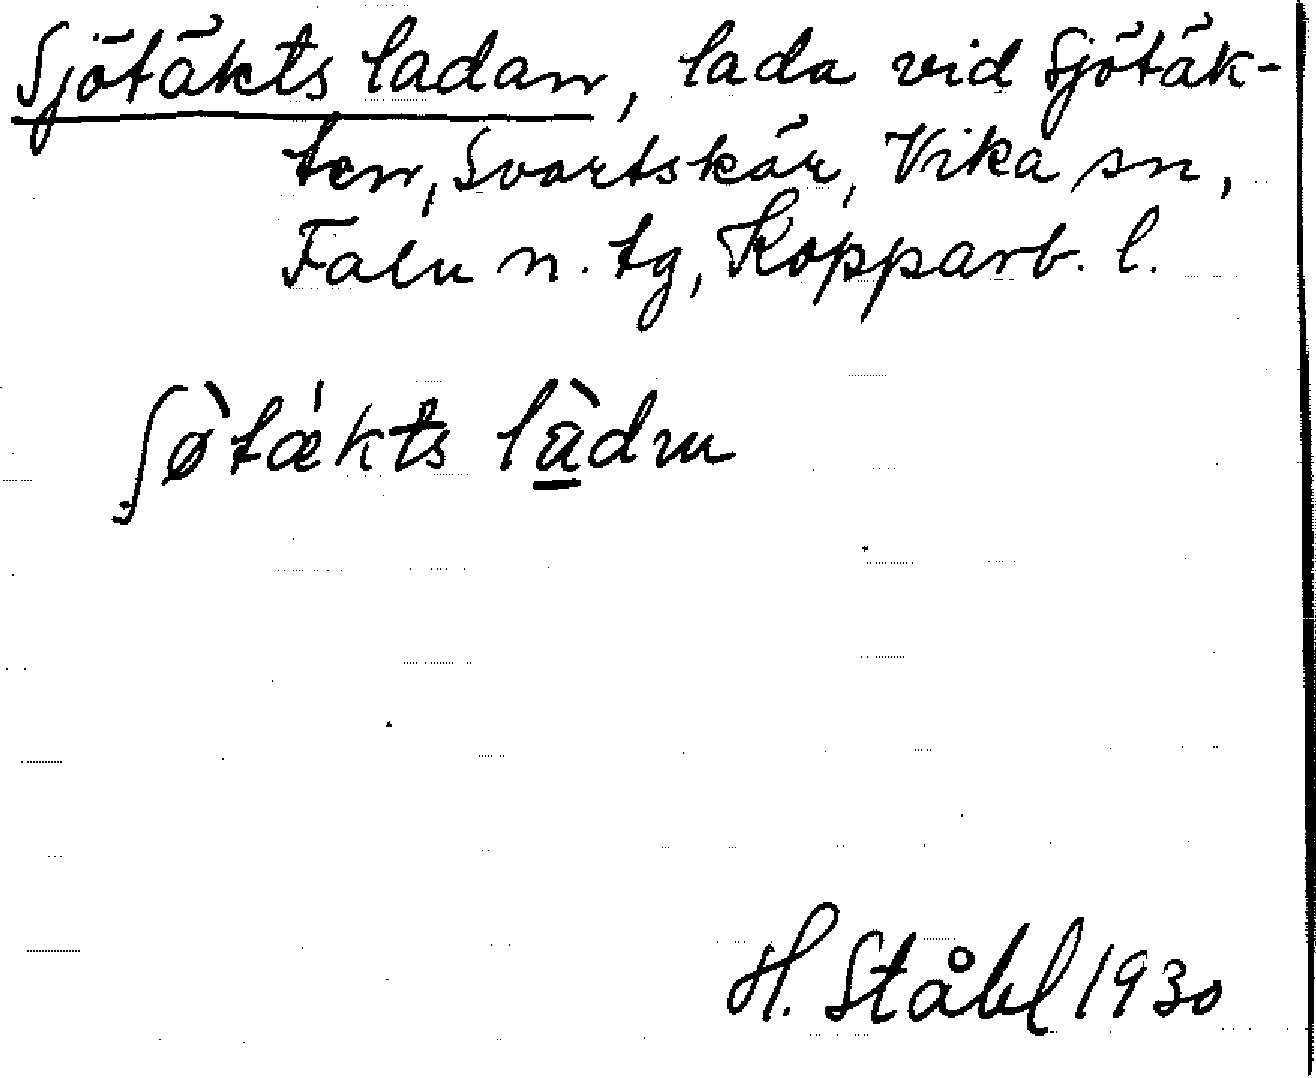 Sjötäkts ladan, lada vid Sjötäk-
ten, Svartskär, Vika sn,
Falu n. tg, Kopparb. l.
ʃø̀tǽkts là̱dṇ
H. Ståhl 1930